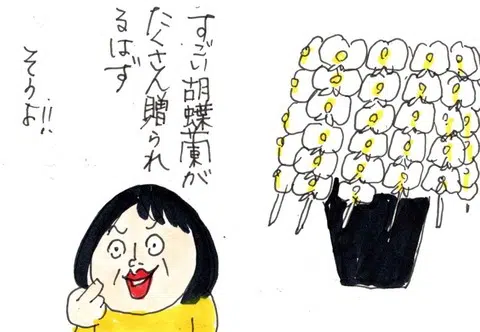 すごい胡蝶蘭が
たくさん贈られ
るはず
そうよ!!